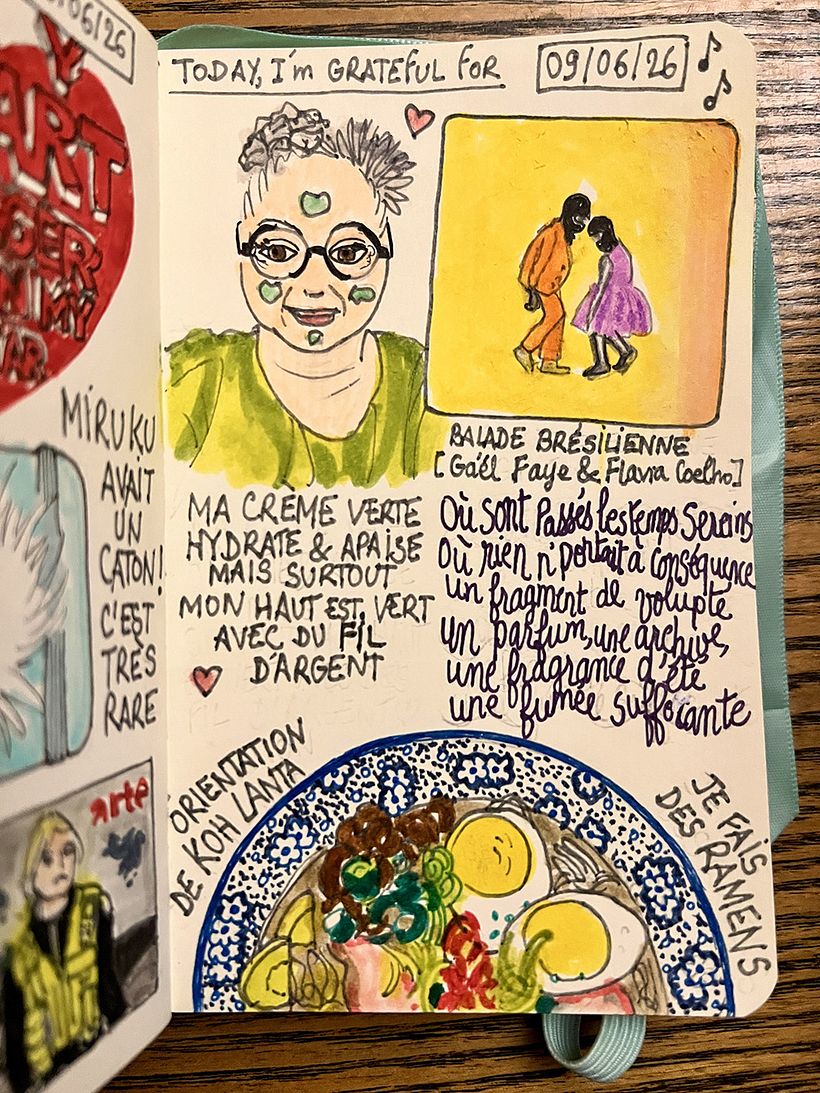 /06/26
ART
MY
MIRUKU
AVAIT
UN
CATON!
C'EST
TRÈS
RARE
arte
TODAY, I'm GRATEFUL FOR
09/06/26
BALADE BRÉSILIENNE
[Gaël Faye & Flavia Coelho]
MA CRÈME VERTE
HYDRATE & APAISE
MAIS SURTOUT
MON HAUT EST VERT
AVEC DU FIL
D'ARGENT
Où sont passés les temps sereins
Où rien n'portait à conséquence
un fragment de volupté
un parfum, une archive,
une fragrance d'été
une fumée suffocante
ORIENTATION
DE KOH LANTA
JE FAIS
DES RAMENS